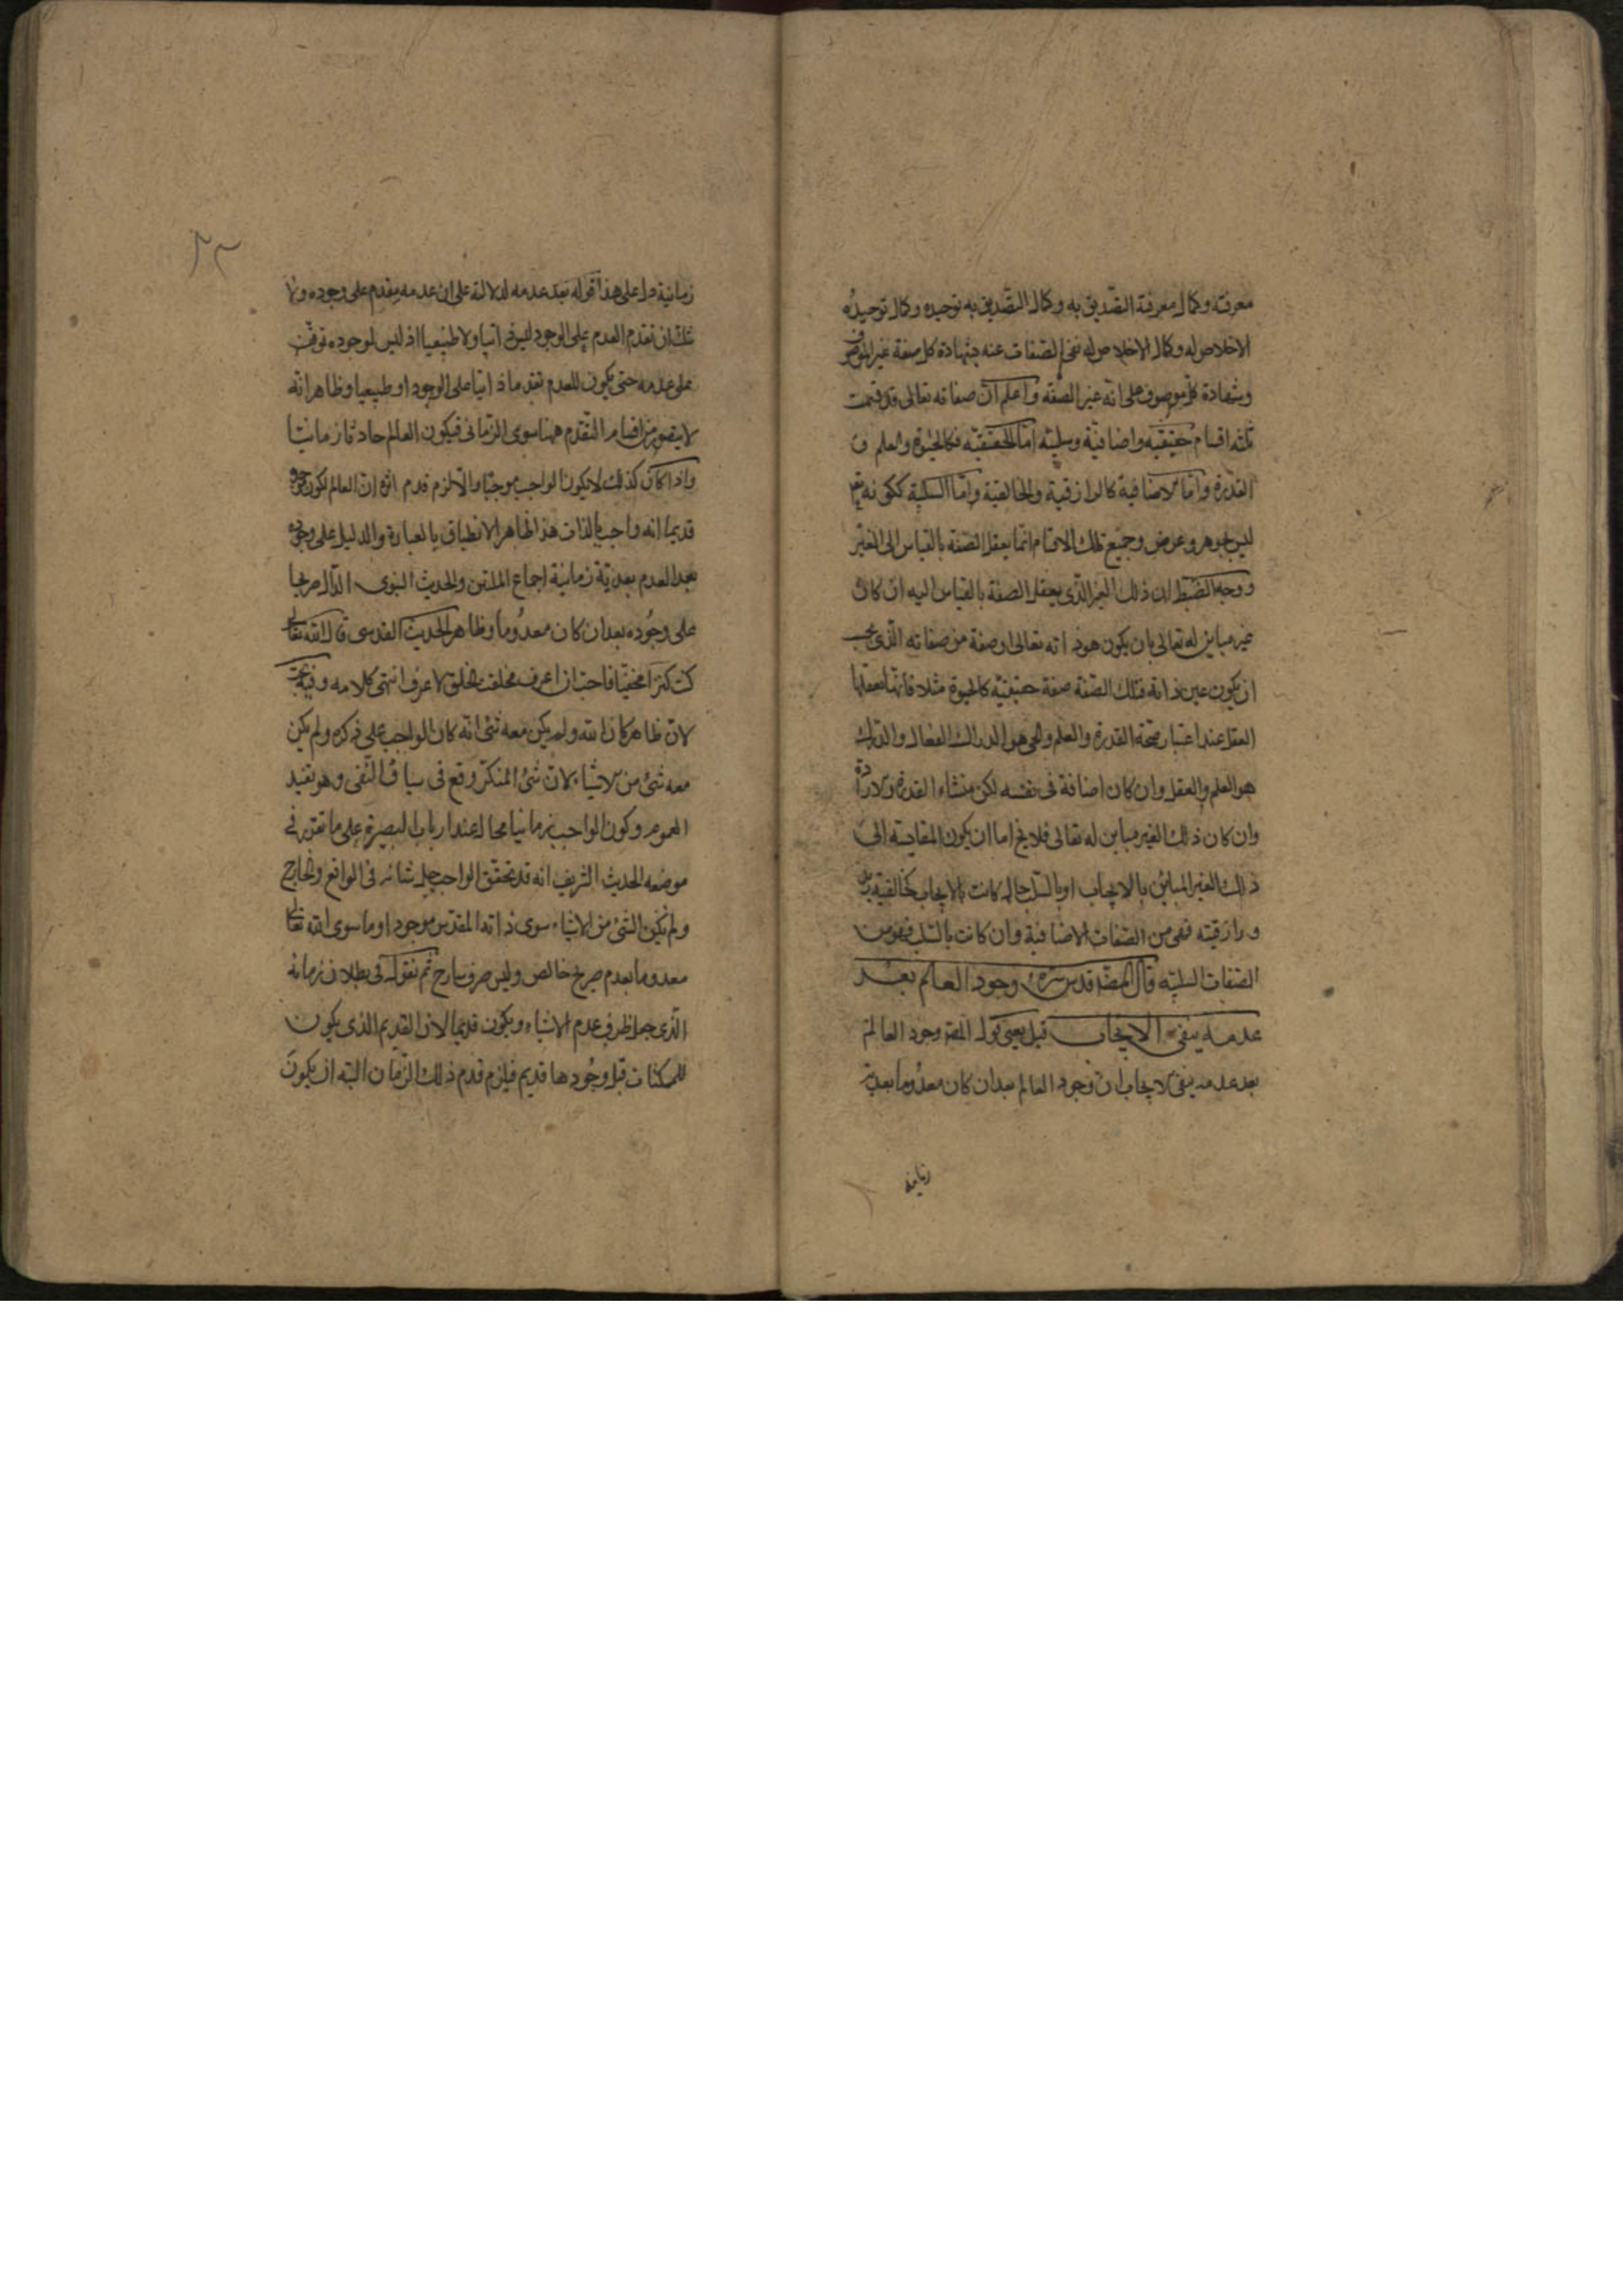 معرفته وكمال معرفة التصديق به وكمال التصديق به توحيده وكمال توحيده
الاخلاص له وكمال الاخلاص له نفي الصفات عنه بشهادة كل صفة غير الموصوف
وبشهادة كل موصوف على انه غير الصفة واعلم ان صفاته تعالى قد قسمت
ثلثه اقسام حقيقيه واضافية وسلبيه اما الحقيقيه فكالحيوة والعلم و
القدرة واما الاضافية كالرازقية والخالقية واما السلبية ككونه تع
ليس بجوهر وعرض وجميع تلك الاقسام انما يعقل الصفة بالقياس الى الغير
ووجه الضبط ان ذلك الغير الذي يعقل الصفة بالقياس اليه ان كان
غير مباين له تعالى بان يكون هو ذاته تعالى او صفة من صفاته الذي يجب
ان يكون عين ذاته فتلك الصفة صفة حقيقيه كالحيوة مثلا فانها تعقلها
العقل عند اعتبار صحة القدرة والعلم والحي هو الدراك الفعال والدرك
هو العلم والعقل وان كان اضافة في نفسه لكن منشاء القدرة والارادة
وان كان ذلك الغير مباين له تعالى فلا يخ اما ان يكون المقايسة الى
ذلك الغير المباين بالايجاب او بالسلب كانت بالايجاب كخالقية زيد
ورازقيته فهي من الصفات الاضافية وان كانت بالسلب فهو من
الصفات السلبيه قال المصه قدس سره وجود العالم بعد
عدمه ينفي الايجاب قيل يعني قوله المصه وجود العالم
بعد عدمه ينفي الايجاب ان وجود العالم بعد ان كان معدوما بعدية
زمانية
٢٣
زمانية دل على هذا قوله بعد عدمه لدلالته على ان عدمه يقدم على وجوده ولا
شك ان تقدم العدم على الوجود ليس ذاتيا ولا طبيعيا اذ ليس لوجوده توقف
على عدمه حتى يكون للعدم تقدما ذاتيا على الوجود او طبيعيا وظاهر انه
لا يتصور من اقسام التقدم ههنا سوى الزماني فيكون العالم حادثا زمانيا
واذا كان كذلك لا يكون الواجب موجبا والا لزم قدم اثره ان العالم لكون موجده
قديما انه واجب بالذات هذا الظاهر الانطباق بالعبارة والدليل على وجوده
بعد العدم بعدية زمانية اجماع المليين والحديث النبوي الدال صريحا
على وجوده بعد ان كان معدوما وظاهر الحديث القدسي قال الله تعالى
كنت كنزا مخفيا فاحببت ان اعرف فخلقت الخلق لاعرف انتهى كلامه وفيه بحث
لان ظاهر كان الله ولم يكن معه شئ انه كان الواجب على ذكره ولم يكن
معه شئ من الاشياء لان شئ المنكر وقع في سياق النفي وهو يفيد
العموم وكون الواجب زمانيا محال عند ارباب البصيرة على ما تقرر في
موضعه الحديث الشريف انه قد تحقق الواجب جل شانه في الواقع والخارج
ولم يكن الشئ من الاشياء سوى ذاته المقدس موجود او ما سوى الله تعالى
معدوما بعدم صريح خالص وليس صرف سارح ثم نقول في بطلان زمانه
الذي جعل ظرف عدم الاشياء ويكون قديما لان القديم الذي يكون
للممكنات قبل وجودها قديم فيلزم قدم ذلك الزمان البته ان يكون